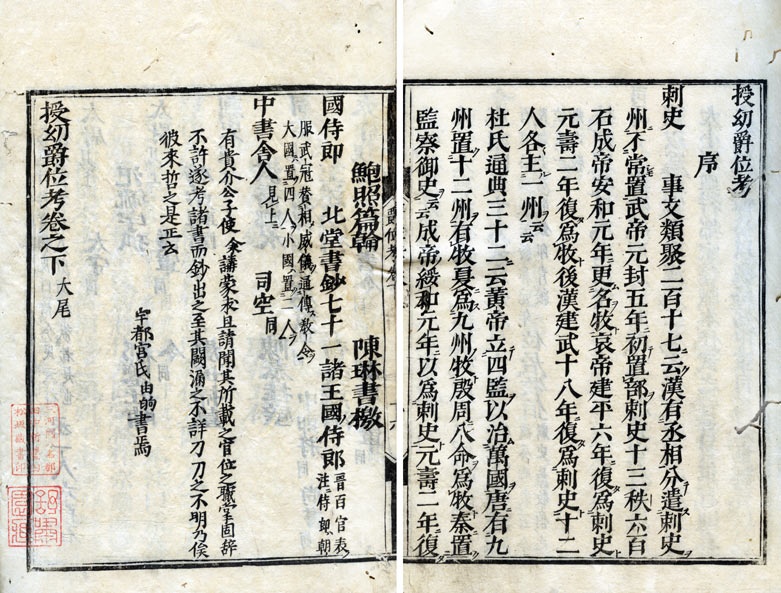 授幼爵位考
序
刺史 事文類聚二百十七云漢有丞相分遣刺史
州不常置武帝元封五年初置部刺史十三秩六百
石成帝安和元年更名牧哀帝建平六年復爲刺史
元壽二年復爲牧後漢建武十八年復爲刺史十二
人各主一州云云
杜氏通典三十二云黃帝立四監以治萬國唐有九
州置十二州有牧夏爲九州牧殷周八命爲牧秦置
監察御史云云成帝綏和元年以爲刺史元壽二年復
鮑照篇翰 陳琳書檄
國侍郎 北堂書鈔七十一諸王國侍郎 晉百官表注侍郎朝
服武冠贊相威儀通傳教令
大國置四人小國置二人
中書舍人 見上 司空 同
有貴介公子使余講蒙求且請聞其所載之官位之職掌固辭
不許逐考諸書而鈔出之至其闕漏之不詳刀刀之不明乃俟
彼來哲之是正云
宇都宮氏由的書焉
授幼爵位考卷之下 大尾